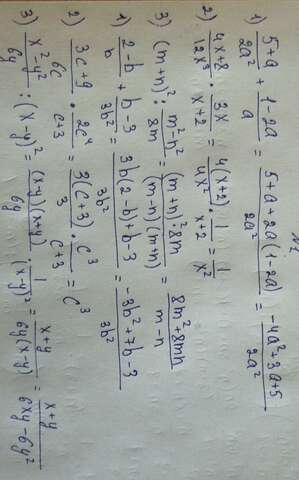 №2
1) (5+a)/(2a²) + (1-2a)/a = (5+a+2a(1-2a))/(2a²) = (-4a²+3a+5)/(2a²)
2) (4x+8)/(12x³) · (3x)/(x+2) = (4(x+2))/(4x²) · 1/(x+2) = 1/x²
3) (m+n)² : (m²-n²)/(8m) = ((m+n)²·8m)/((m-n)(m+n)) = (8m²+8mn)/(m-n)
1) (2-b)/b + (b-3)/(3b²) = (3b(2-b)+b-3)/(3b²) = (-3b²+7b-3)/(3b²)
2) (3c+9)/(6c) · (2c⁴)/(c+3) = (3(c+3))/3 · c³/(c+3) = c³
3) (x²-y²)/(6y) : (x-y)² = ((x-y)(x+y))/(6y) · 1/(x-y)² = (x+y)/(6y(x-y)) = (x+y)/(6xy-6y²)